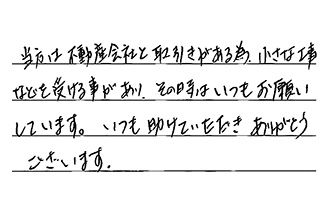 当方は不動産会社と取引きがある為、小さな工事
などを受ける事があり、その時はいつもお願い
しています。いつも助けていただきありがとう
ございます。